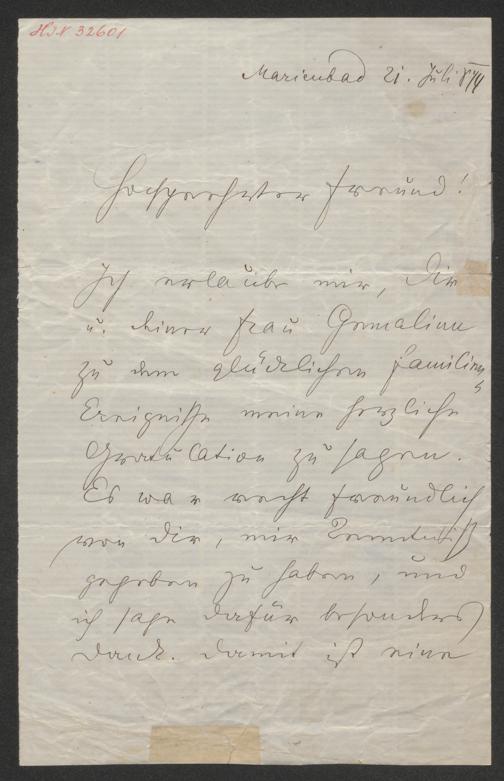 HIN 32601
Marienbad 21. Juli 874
Hochgeehrter Freund!
Ich erlaube mir, Dir
u. Deiner Frau Gemalinn
zu dem glücklichen Familien-
Ereignisse meine herzliche
Gratulation zu sagen.
Es war recht freundlich
von Dir, mir Kenntniß
gegeben zu haben, und
ich sage dafür besonders
Dank. Damit ist eine